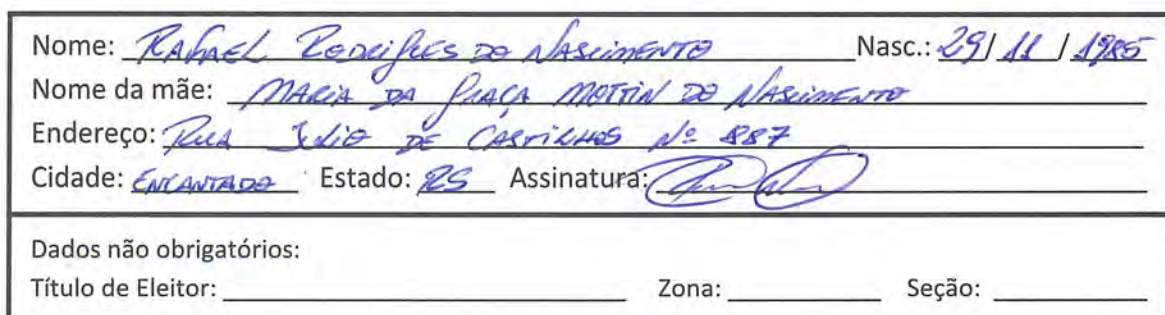 Nome: RAFAEL RODRIGUES DO NASCIMENTO Nasc.: 29/ 11 / 1985
Nome da mãe: MARIA DA GRAÇA MOTTIN DO NASCIMENTO
Endereço: RUA JULIO DE CASTILHOS Nº 887
Cidade: ENCANTADO Estado: RS Assinatura:
Dados não obrigatórios:
Título de Eleitor: Zona: Seção: